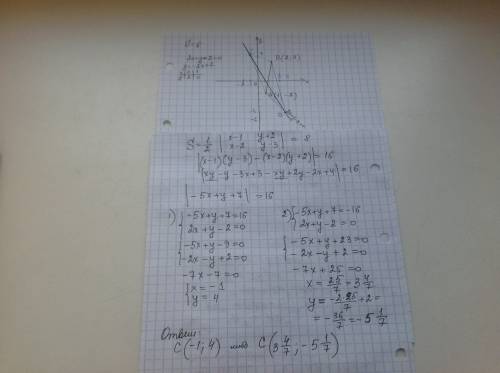 S=8
2x+y-2=0
y=-2x+2
S = 1/2 | x-1 y+2 | = 8
| x-2 y-3 |
|(x-1)(y-3)-(x-2)(y+2)|=16
|xy-y-3x+3-xy+2y-2x+4|=16
|-5x+y+7|=16
1) { -5x+y+7=16
2x+y-2=0
{ -5x+y-9=0
-2x-y+2=0
-7x-7=0
{ x=-1
y=4
2) { -5x+y+7=-16
2x+y-2=0
{ -5x+y+23=0
-2x-y+2=0
-7x+25=0
x=25/7=3 4/7
y=-2·25/7+2=
=-36/7=-5 1/7
Ответ:
C(-1;4) или C(3 4/7; -5 1/7)